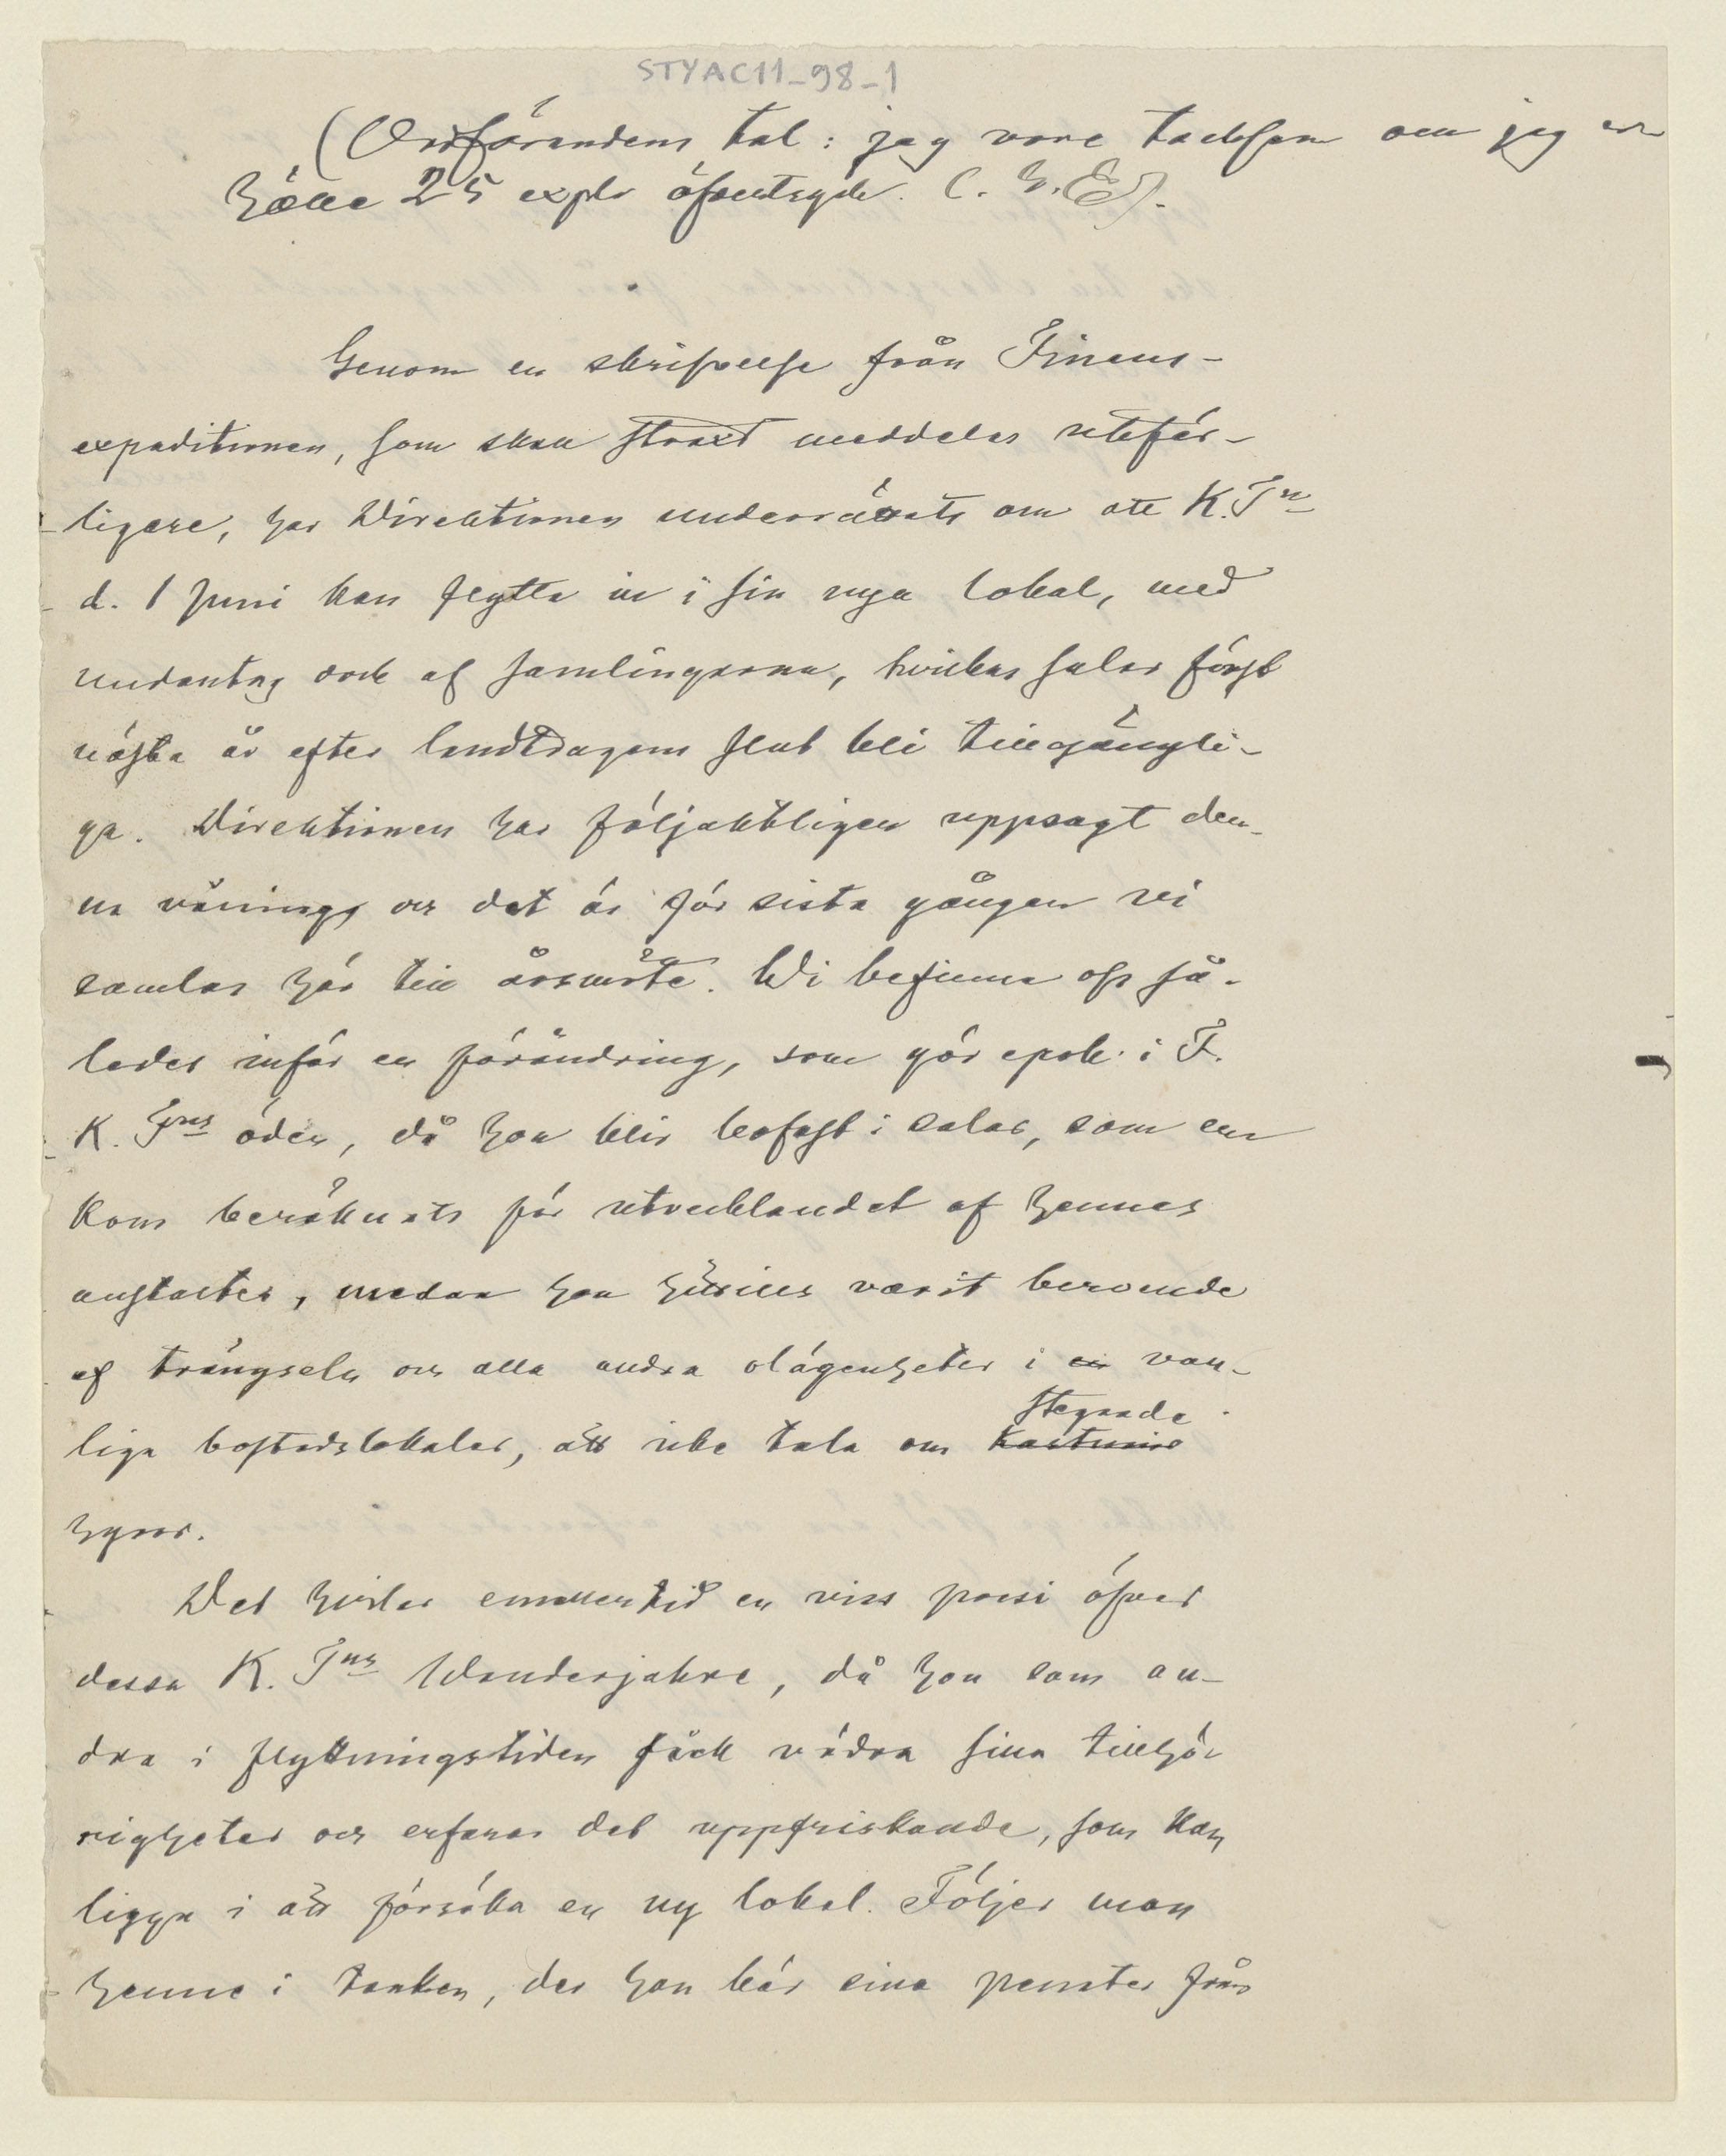 STYAC11_98_1
(Ordförandens tal: jag vore tacksam om jag
hölle 25 expl öfventryck. C. G. E).
Genom en skrifvelse från Finans-
expeditionen, som skall straxt meddelas utför-
ligare, har Direktionen underrättats om att K. Fn
d. 1 Juni kan flytta in i sin nya lokal, med
undantag dock af samlingarna, hvilkas salar först
nästa år efter landtdagens slut bli tillgängli-
ga. Direktionen har följaktligen uppsagt den-
na våning, och det är för sista gången vi
samlas här till årsmöte. Wi befinna oss så-
ledes inför en förändring, som gör epok i F.
K. Fns öden, då hon blir bofast i salar, som en
kom beräknats för utvecklandet af hennes
anstalter, medan hon hittills varit beroende
af trängseln och alla andra olägenheter i en van-
liga bostadslokaler, att icke tala om
stegrade
hyror.
Det hvilar emellertid en viss poesi öfver
dessa K. Fns Wanderjahre, då hon som an-
dra i flyttningstiden fick vädra sina tillhö-
righeter och erfarar det uppfriskande, som kan
ligga i att försöka en ny lokal. Följer man
henne i tanken, der hon bär sina penater från